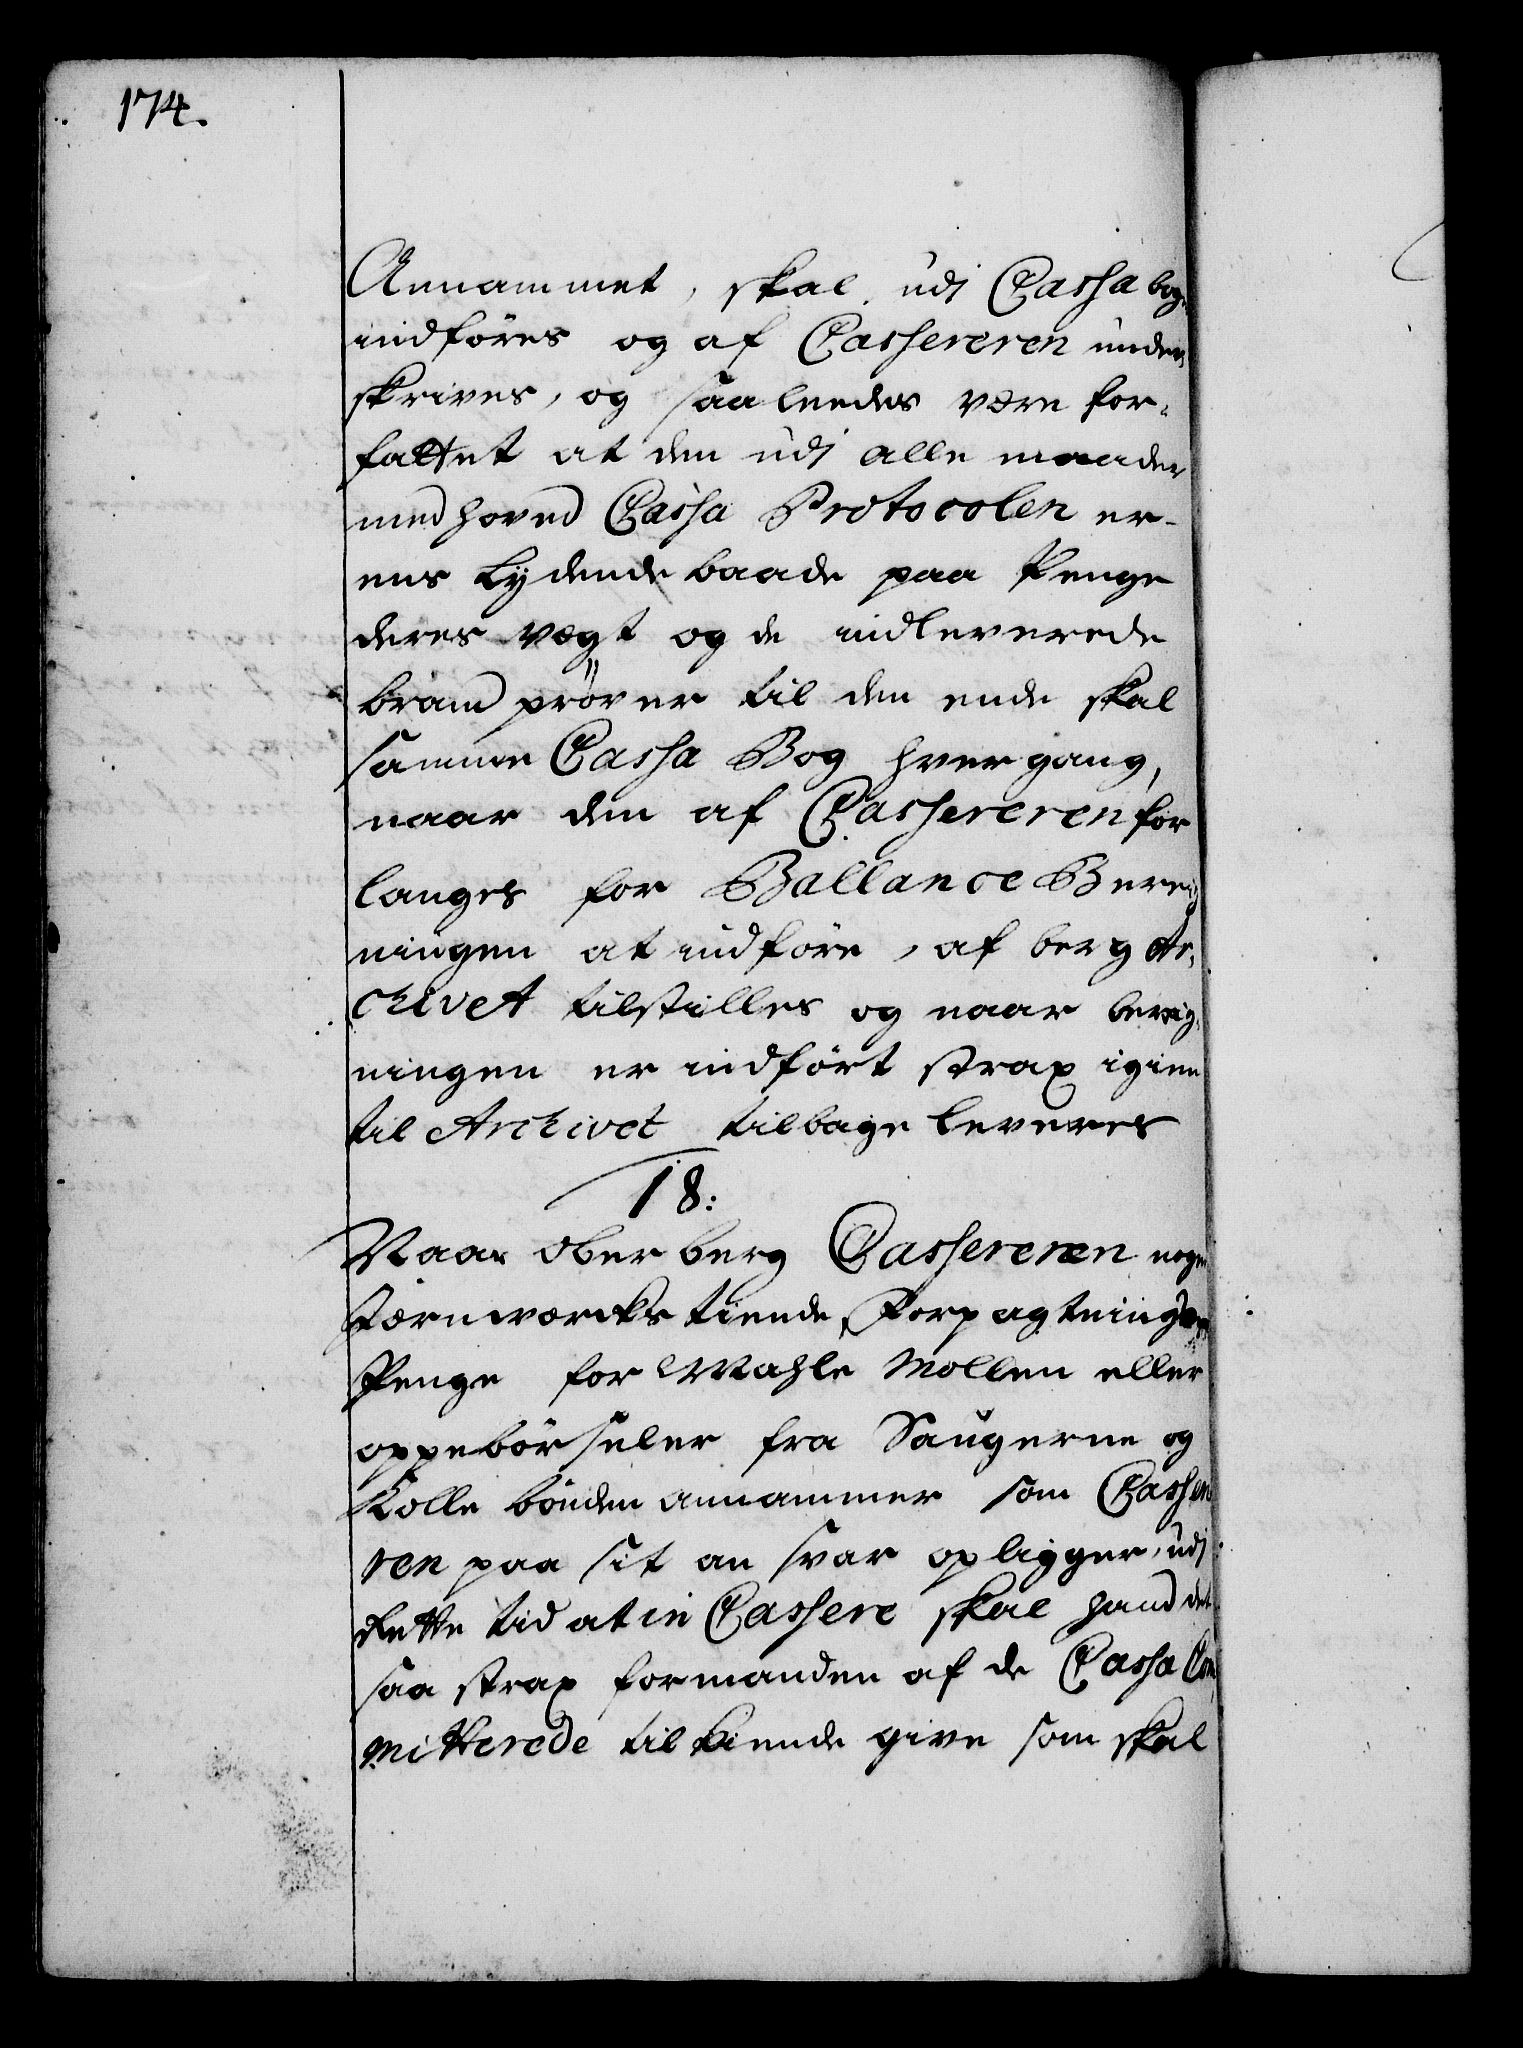 174.
Annammet, skal udj Cassa bog,
indføres og af Cassereren under
skrives, og saaleedes være for-
fattet at den udj alle maader
med hoved Cassa Protocolen er-
ens lydende baade paa Penge
deres vægt og de indleverede
brand prøver til den ende skal
samme Cassa Bog hver gang,
naar den af Cassereren for
langes for Ballance Bereig
ningen at indføre, af berg Ar,
chivet tilstilles og naar bereig,
ningen er indført strax igien
til Archivet tilbage leveres
18:
Naar Ober berg Cassereren nogen
Jernværcks tiende, Forpagtnings
Penge for Mahle Møllen eller
oppebørseler fra Saugerne og
Kolle bønder annammer som Casse
ren paa sit an svar opligger, udj
Rette tid at in Cassere skal hand det
saa strax formanden af de Cassa Com
mitterede til kiende give som skal